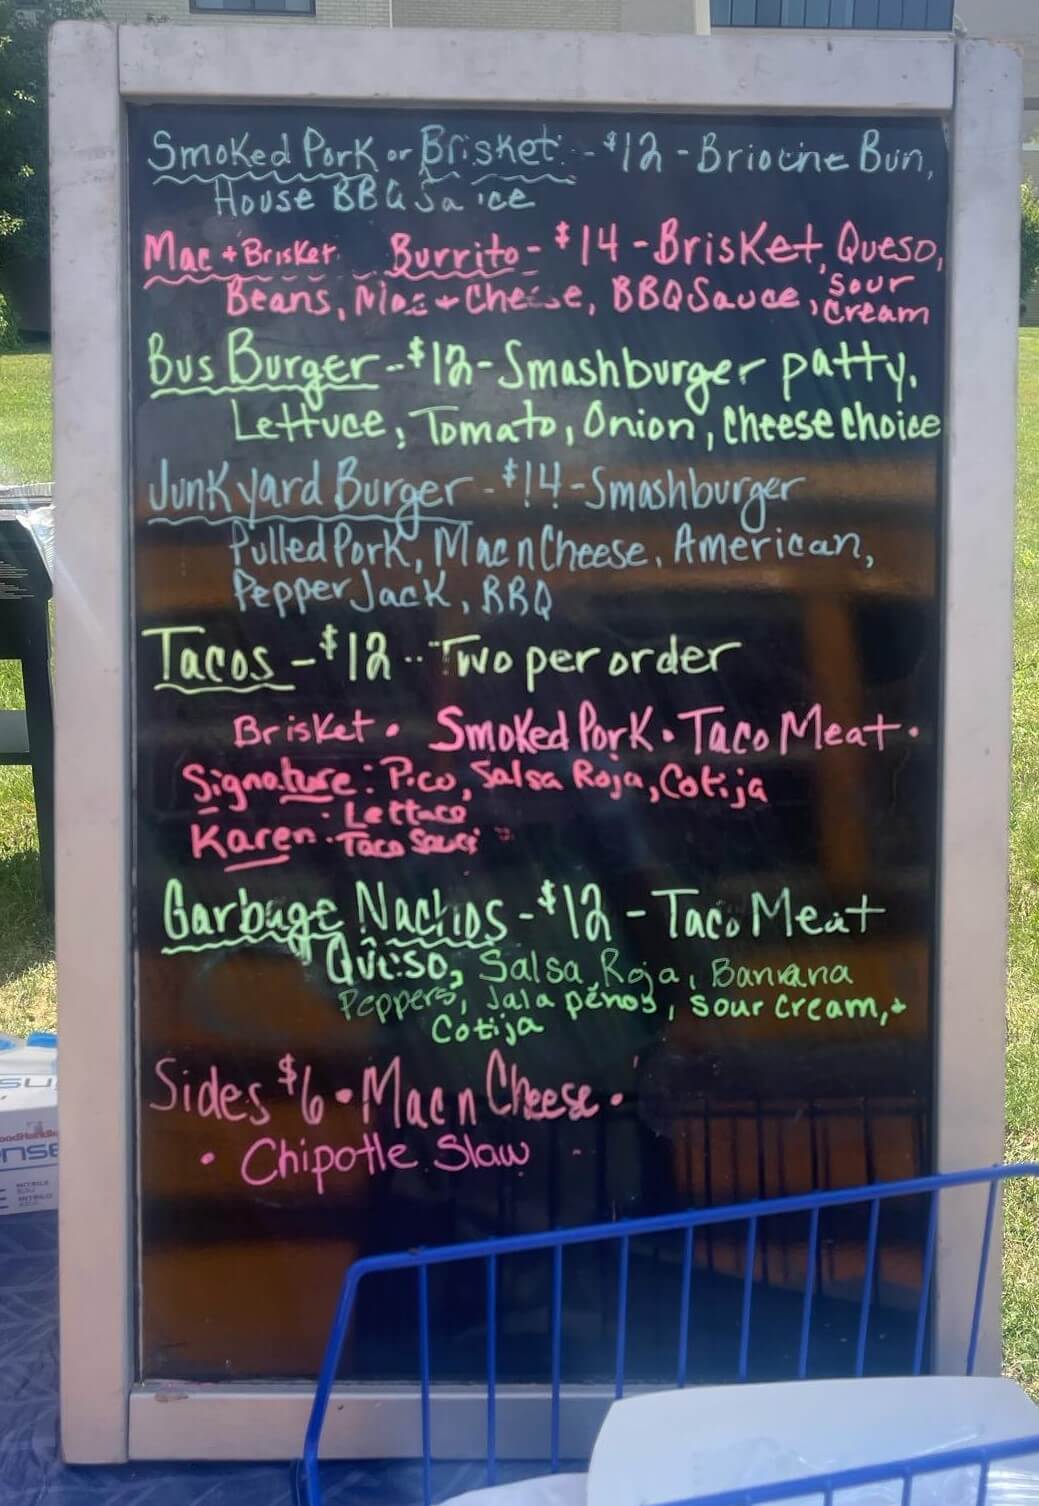 Smoked Pork or Brisket - $12 - Briocine Bun,
House BBQ Sauce
Mac + Brisket Burrito - $14 - Brisket, Queso,
Beans, Mac + Cheese, BBQ Sauce, Sour Cream
Bus Burger - $12 - Smashburger patty,
Lettuce, Tomato, Onion, Cheese Choice
Junkyard Burger - $14 - Smashburger
Pulled Pork, Mac n Cheese, American,
Pepper Jack, BBQ
Tacos - $12 - Two per order
Brisket • Smoked Pork • Taco Meat •
Signature: Pico, Salsa Roja, Cotija
Karen • Lettuce • Taco Sauce
Garbage Nachos - $12 - Taco Meat
Queso, Salsa Roja, Banana
Peppers, Jalapeños, Sour Cream, +
Cotija
Sides $6 • Mac n Cheese •
• Chipotle Slaw
NITRILE